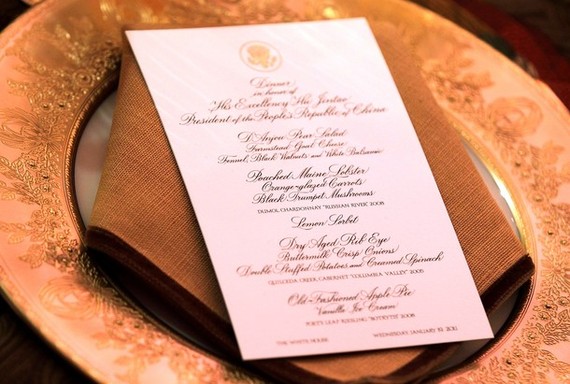 Dinner
in honor of
His Excellency Hu Jintao
President of the People's Republic of China
D'Anjou Pear Salad
Farmstead Goat Cheese
Fennel, Black Walnuts and White Balsamic
Poached Maine Lobster
Orange-glazed Carrots
Black Trumpet Mushrooms
DUMOL CHARDONNAY "RUSSIAN RIVER" 2008
Lemon Sorbet
Dry Aged Rib Eye
Buttermilk Crisp Onions
Double Stuffed Potatoes and Creamed Spinach
QUILCEDA CREEK CABERNET "COLUMBIA VALLEY" 2005
Old-Fashioned Apple Pie
Vanilla Ice Cream
POET'S LEAP RIESLING "BOTRYTIS" 2008
THE WHITE HOUSE WEDNESDAY, JANUARY 19, 2011